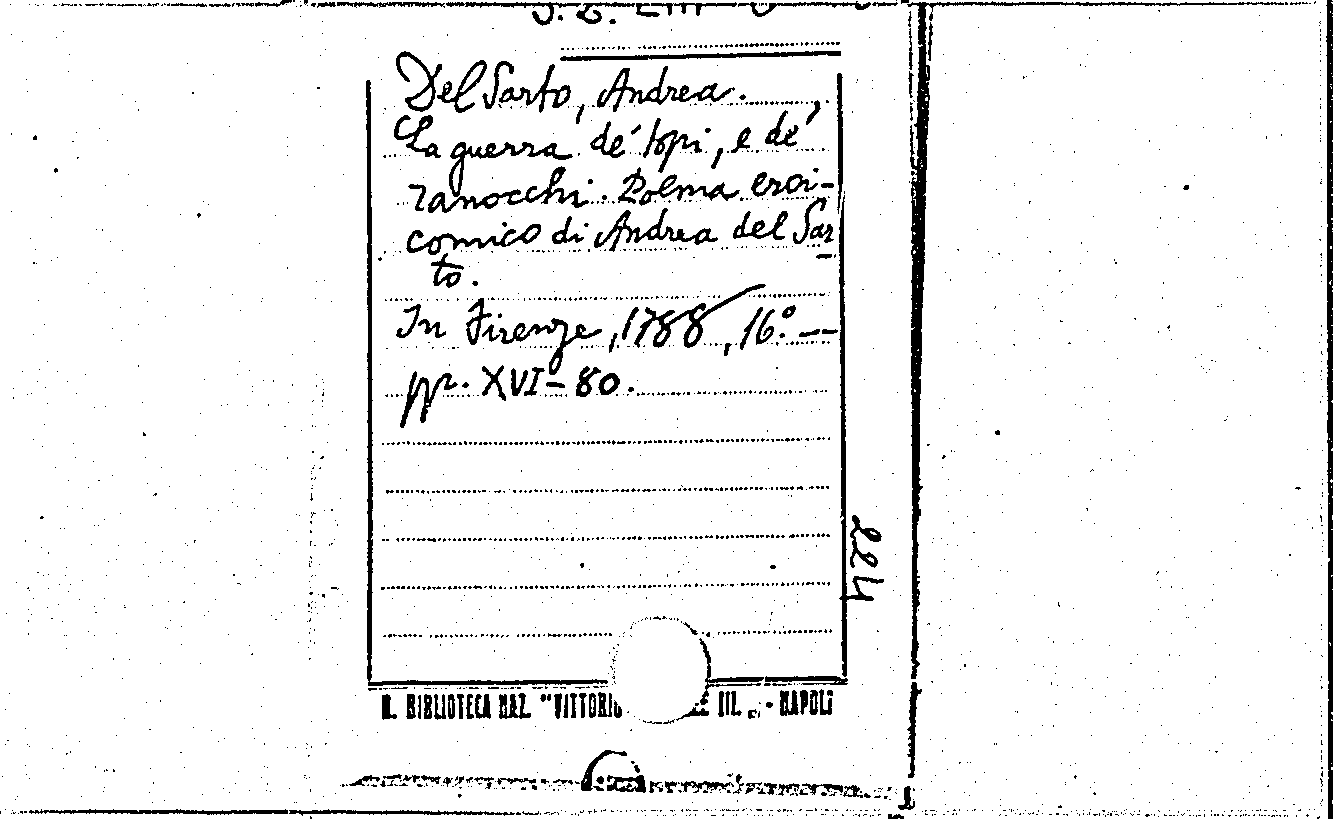 Del Sarto, Andrea.
La guerra de' topi, e de'
ranocchi. Poema eroi-
comico di Andrea del Sar-
to.
In Firenze, 1788, 16.° —
pp. XVI-80.
R. BIBLIOTECA NAZ. "VITTORIO III. „ - NAPOLI